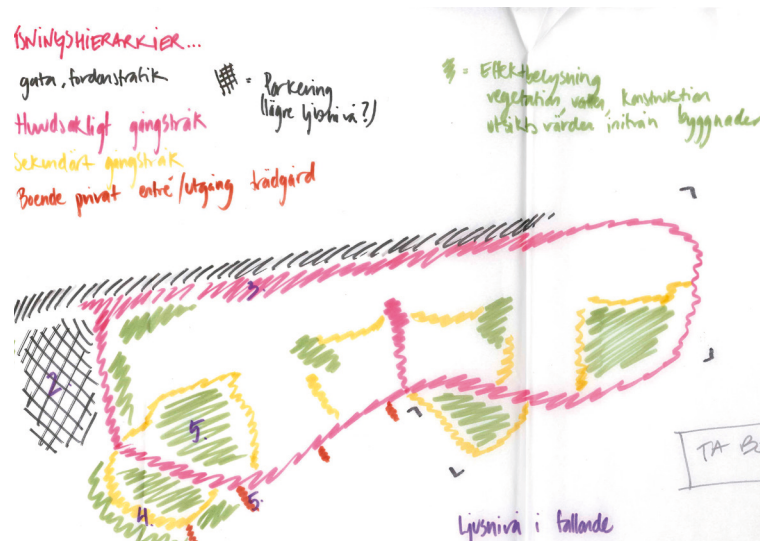 SNINGSHIERARKIER...
gata, fordonstrafik
Huvudsakligt gångstråk
Sekundärt gångstråk
Boende privat entré/utgång trädgård
= Parkering
(lägre ljusnivå?)
= Effektbelysning
vegetation, vatten, konstruktion
utsiktsvärden inifrån byggnader
3
2.
5.
4.
5.
TA B
Ljusnivå i fallande